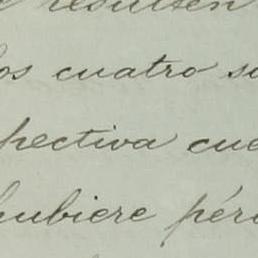 resulten
os cuatro su
pectiva cue
hubiere pér